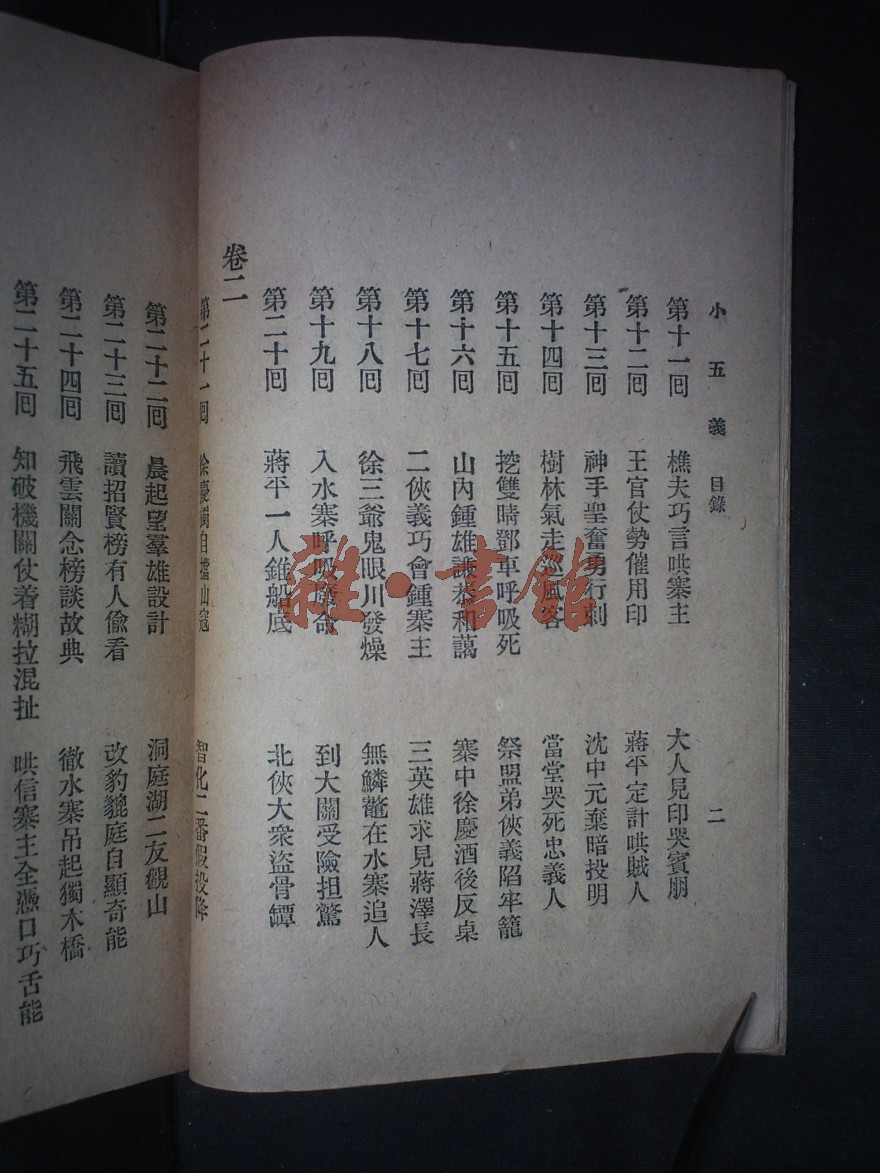 小五義 目錄 二
第十一回 樵夫巧言哄寨主 大人見印哭賓朋
第十二回 王官仗勢催用印 蔣平定計哄賊人
第十三回 神手聖奮勇行刺 沈中元棄暗投明
第十四回 樹林氣走巡風客 當堂哭死忠義人
第十五回 挖雙睛鄧車呼吸死 祭盟弟俠義陷牢籠
第十六回 山內鍾雄謙恭和藹 寨中徐慶酒後反桌
第十七回 二俠義巧會鍾寨主 三英雄求見蔣澤長
第十八回 徐三爺鬼眼川發燥 無鱗鼈在水寨追人
第十九回 入水寨呼吸廢命 到大關受險担驚
第二十回 蔣平一人錐船底 北俠大衆盜骨罈
卷二
第二十一回 徐慶獨自擋山寇 智化二番假投降
第二十二回 晨起望羣雄設計 洞庭湖二友觀山
第二十三回 讀招賢榜有人偷看 改豹貔庭自顯奇能
第二十四回 飛雲關念榜談故典 徹水寨吊起獨木橋
第二十五回 知破機關仗着糊拉混扯 哄信寨主全憑口巧舌能
雜·書館